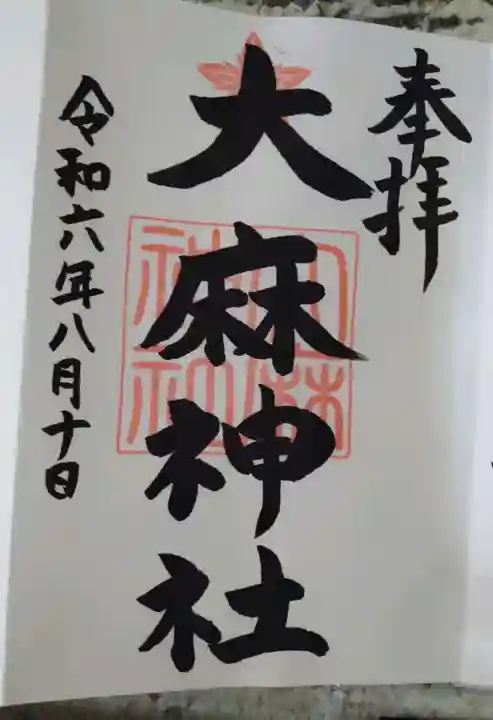 奉拝
大麻神社
令和六年八月十日